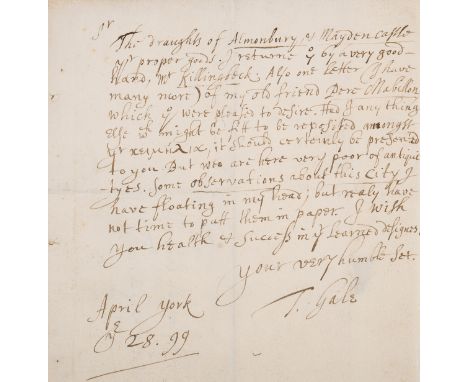 Sr
The draughts of Almonbury & Mayden Castle
yr proper goods I returne yu by a very good
hand, Mr Killingbeck. Also one Letter (I have
many more) of my old friend Pere Mabillon
which yu were pleased to desire. Had I any thing
Else yt might be fitt to be reposited amongst
yr κειμήλια, it should certainly be presented
to you. But wee are here very poor of antiqui-
tyes. Some observations about this City I
have floating in my head; but realy have
not time to putt them in paper. I wish
you health & Success in yr Learned designes.
Your very humble Set.
T. Gale
April York
ye 28. 99